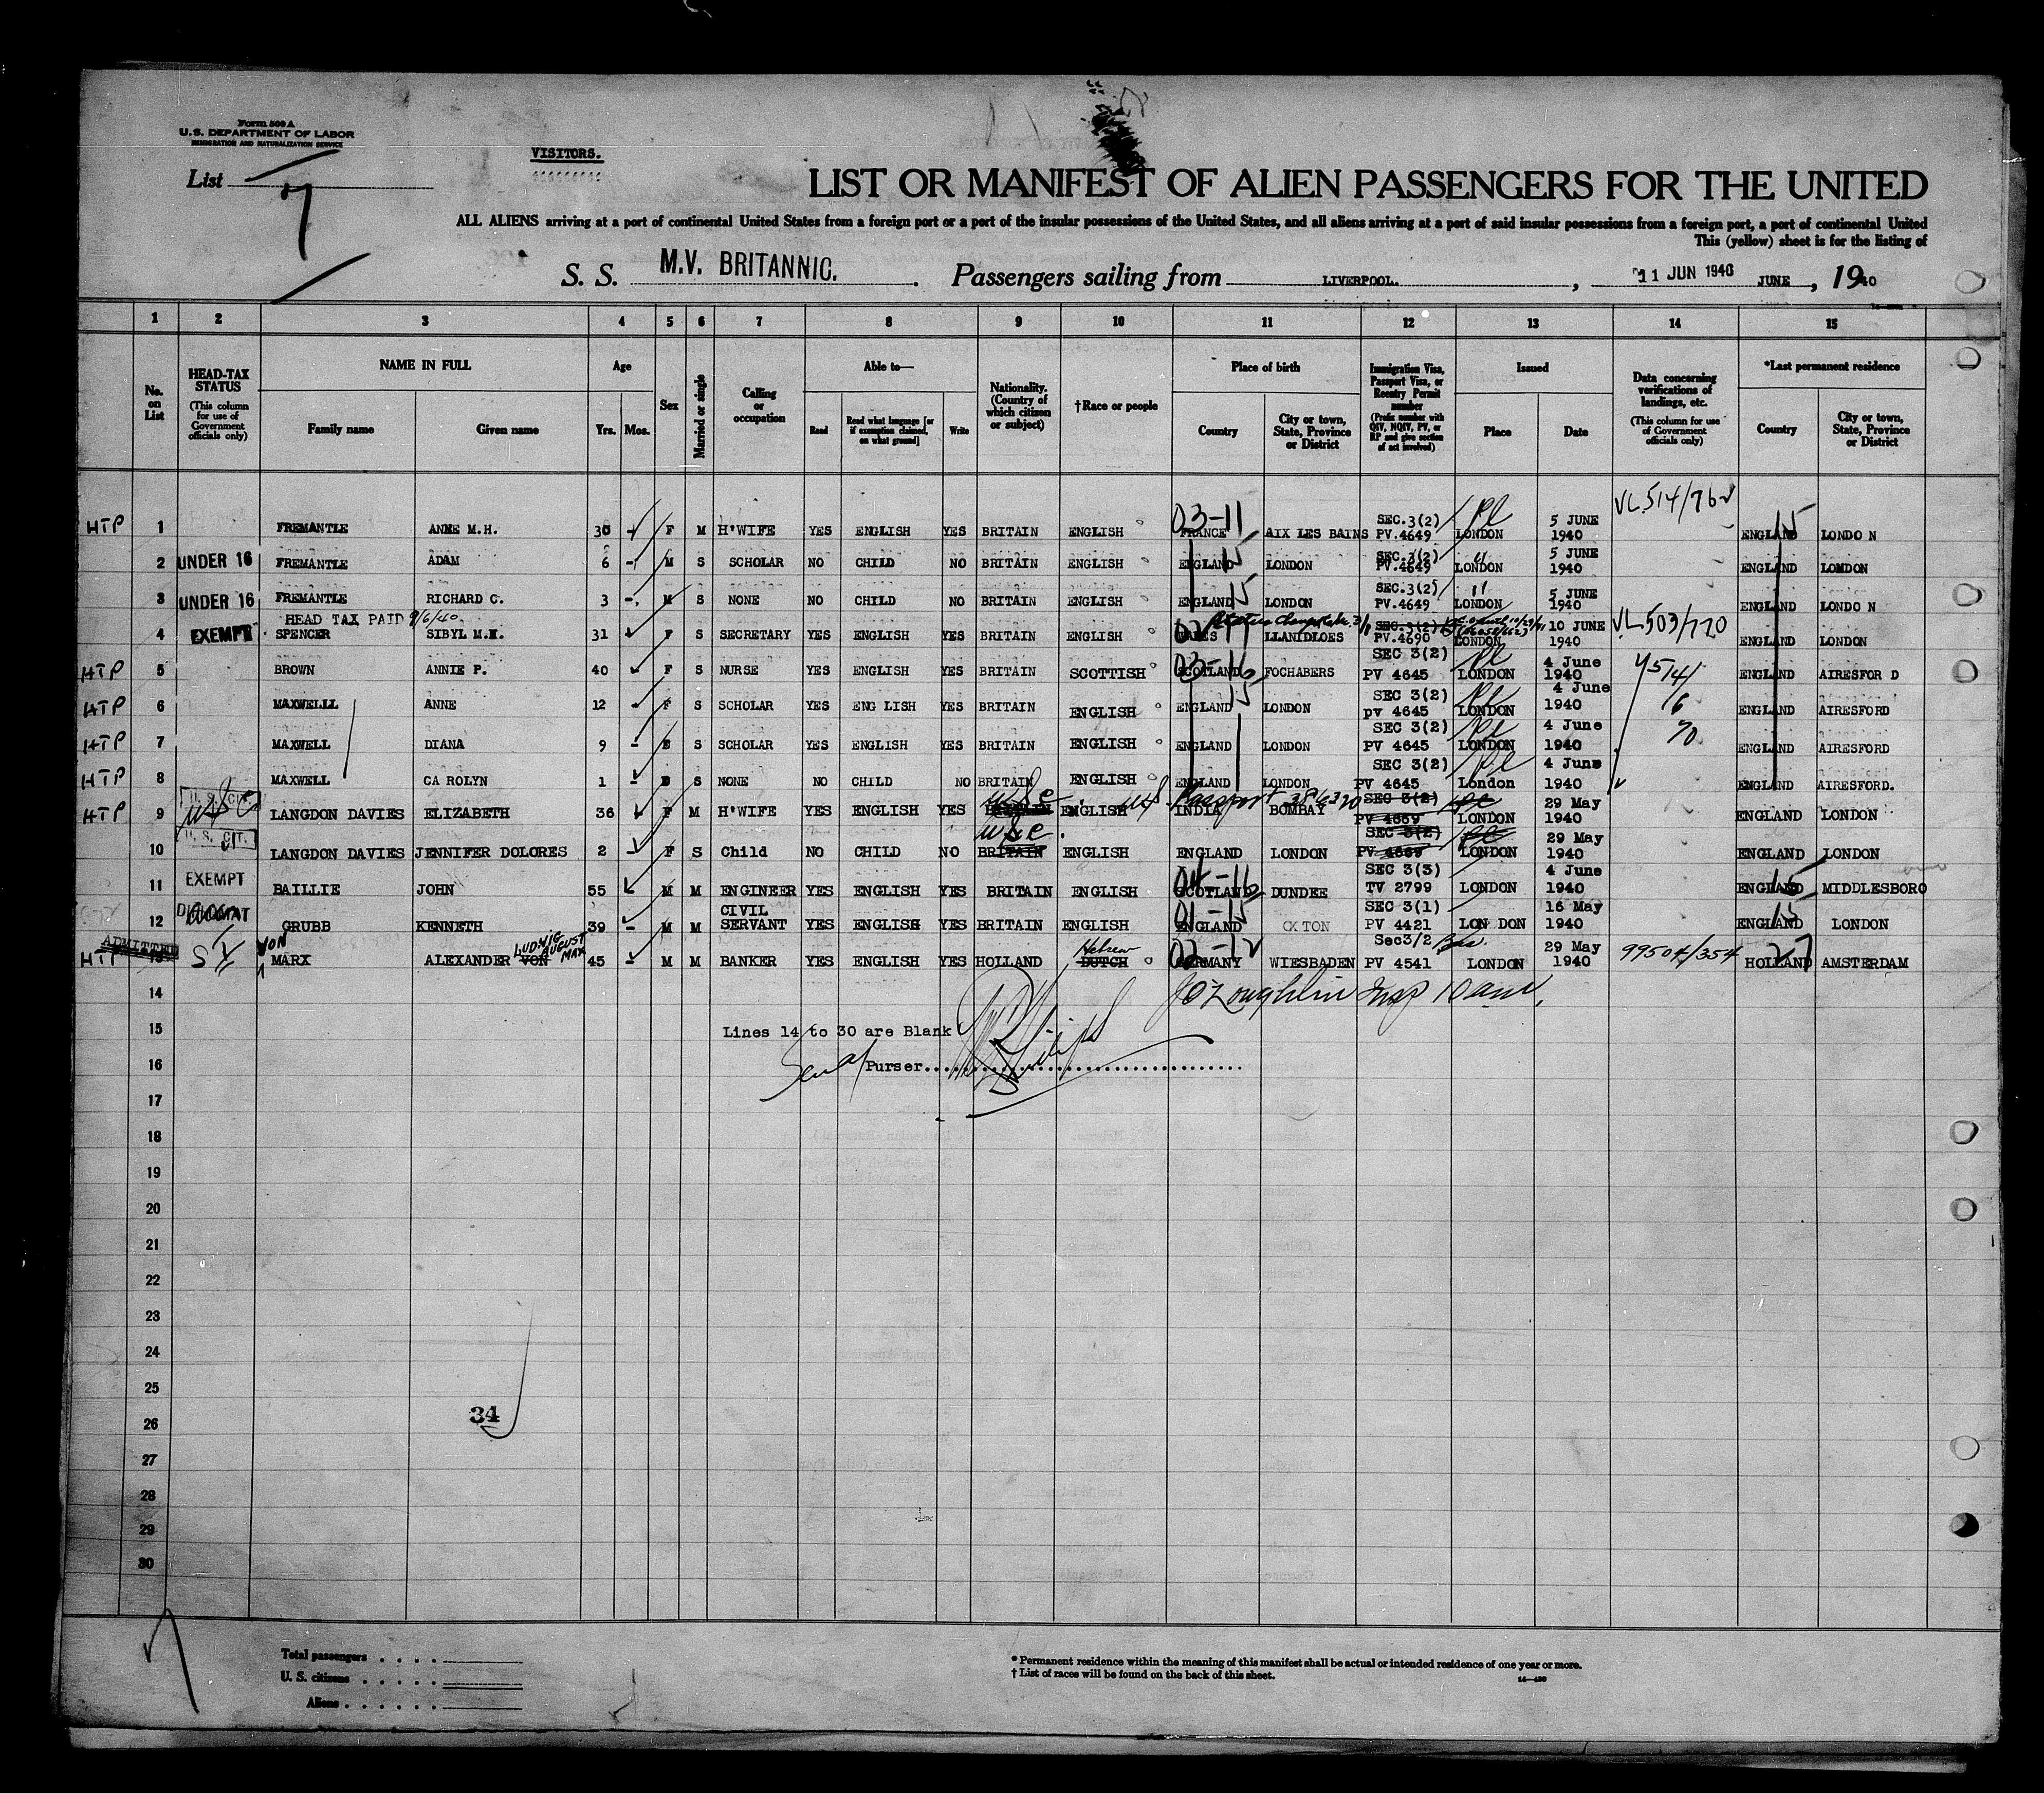 Form 500 A
U.S. DEPARTMENT OF LABOR
IMMIGRATION AND NATURALIZATION SERVICE
List 7
VISITORS.
LIST OR MANIFEST OF ALIEN PASSENGERS FOR THE UNITED
ALL ALIENS arriving at a port of continental United States from a foreign port or a port of the insular possessions of the United States, and all aliens arriving at a port of said insular possessions from a foreign port, a port of continental United
This (yellow) sheet is for the listing of
S. S. M.V. BRITANNIC. Passengers sailing from LIVERPOOL. , 11 JUN 1940 JUNE , 1940
1 2 3 4 5 6 7 8 9 10 11 12 13 14 15
No. on List
HEAD-TAX STATUS (This column for use of Government officials only)
NAME IN FULL Family name Given name
Age Yrs. Mos.
Sex
Married or single
Calling or occupation
Able to— Read Read what language [or if exemption claimed, on what ground] Write
Nationality. (Country of which citizen or subject)
†Race or people
Place of birth Country City or town, State, Province or District
Immigration Visa, Passport Visa, or Reentry Permit number (Prefix number with QIV, NQIV, PV, or RP and give section of act involved)
Issued Place Date
Data concerning verifications of landings, etc. (This column for use of Government officials only)
*Last permanent residence Country City or town, State, Province or District
VL514/762
HTP 1 FREMANTLE ANNE M.H. 30 - F M H'WIFE YES ENGLISH YES BRITAIN ENGLISH 03-11 FRANCE AIX LES BAINS SEC.3(2) PV.4649 LONDON 5 JUNE 1940 ENGLAND 15 LONDO N
2 UNDER 16 FREMANTLE ADAM 6 - M S SCHOLAR NO CHILD NO BRITAIN ENGLISH ENGLAND 15 LONDON SEC.3(2) PV.4649 LONDON 5 JUNE 1940 ENGLAND LONDON
3 UNDER 16 FREMANTLE RICHARD C. 3 - M S NONE NO CHILD NO BRITAIN ENGLISH ENGLAND 15 LONDON SEC.3(2) PV.4649 LONDON 5 JUNE 1940 ENGLAND LONDO N
HEAD TAX PAID 9/6/40
4 EXEMPT SPENCER SIBYL M.K. 31 F S SECRETARY YES ENGLISH YES BRITAIN ENGLISH WALES LLANIDLOES SEC.3(2) PV.4690 LONDON 10 JUNE 1940 VL503/720 ENGLAND LONDON
HTP 5 BROWN ANNIE P. 40 F S NURSE YES ENGLISH YES BRITAIN SCOTTISH 03-16 SCOTLAND FOCHABERS SEC 3(2) PV 4645 LONDON 4 June 1940 ENGLAND AIRESFOR D
HTP 6 MAXWELLL ANNE 12 - F S SCHOLAR YES ENG LISH YES BRITAIN ENGLISH ENGLAND 15 LONDON SEC 3(2) pv 4645 LONDON 4 June 1940 ENGLAND AIRESFORD
HTP 7 MAXWELL DIANA 9 - S SCHOLAR YES ENGLISH YES BRITAIN ENGLISH ENGLAND LONDON SEC 3(2) PV 4645 LONDON 4 June 1940 ENGLAND AIRESFORD
HTP 8 MAXWELL CA ROLYN 1 - S NONE NO CHILD NO BRITAIN ENGLISH ENGLAND LONDON SEC 3(2) PV 4645 London 4 June 1940 ENGLAND AIRESFORD.
HTP 9 U. S. CIT. LANGDON DAVIES ELIZABETH 36 F M H'WIFE YES ENGLISH YES ENGLISH Passport INDIA BOMBAY SEC 3(2) PV 4669 LONDON 29 May 1940 ENGLAND LONDON
10 U. S. CIT. LANGDON DAVIES JENNIFER DOLORES 2 - F S Child NO CHILD NO BRITAIN ENGLISH ENGLAND LONDON SEC 3(2) PV 4669 LONDON 29 May 1940 ENGLAND LONDON
11 EXEMPT BAILLIE JOHN 55 M M ENGINEER YES ENGLISH YES BRITAIN ENGLISH 04-16 SCOTLAND DUNDEE SEC 3(3) TV 2799 LONDON 4 June 1940 ENGLAND 15 MIDDLESBORO
12 DIPLOMAT GRUBB KENNETH 39 - M M CIVIL SERVANT YES ENGLISH YES BRITAIN ENGLISH 01-15 ENGLAND OXTON SEC 3(1) PV 4421 LON DON 16 May 1940 ENGLAND 15 LONDON
ADMITTED
HTP 13 SI VON MARX ALEXANDER VON LUDWIG AUGUST MAX 45 - M M BANKER YES ENGLISH YES HOLLAND Hebrew DUTCH 02-12 GERMANY WIESBADEN Sec3/2 PV 4541 LONDON 29 May 1940 99504/354 HOLLAND 27 AMSTERDAM
14
15 Lines 14 to 30 are Blank
16 Purser
17
18
19
20
21
22
23
24
25
26
34
27
28
29
30
Total passengers . . . .
U. S. citizens . . . . .
Aliens . . . . . .
* Permanent residence within the meaning of this manifest shall be actual or intended residence of one year or more.
† List of races will be found on the back of this sheet.